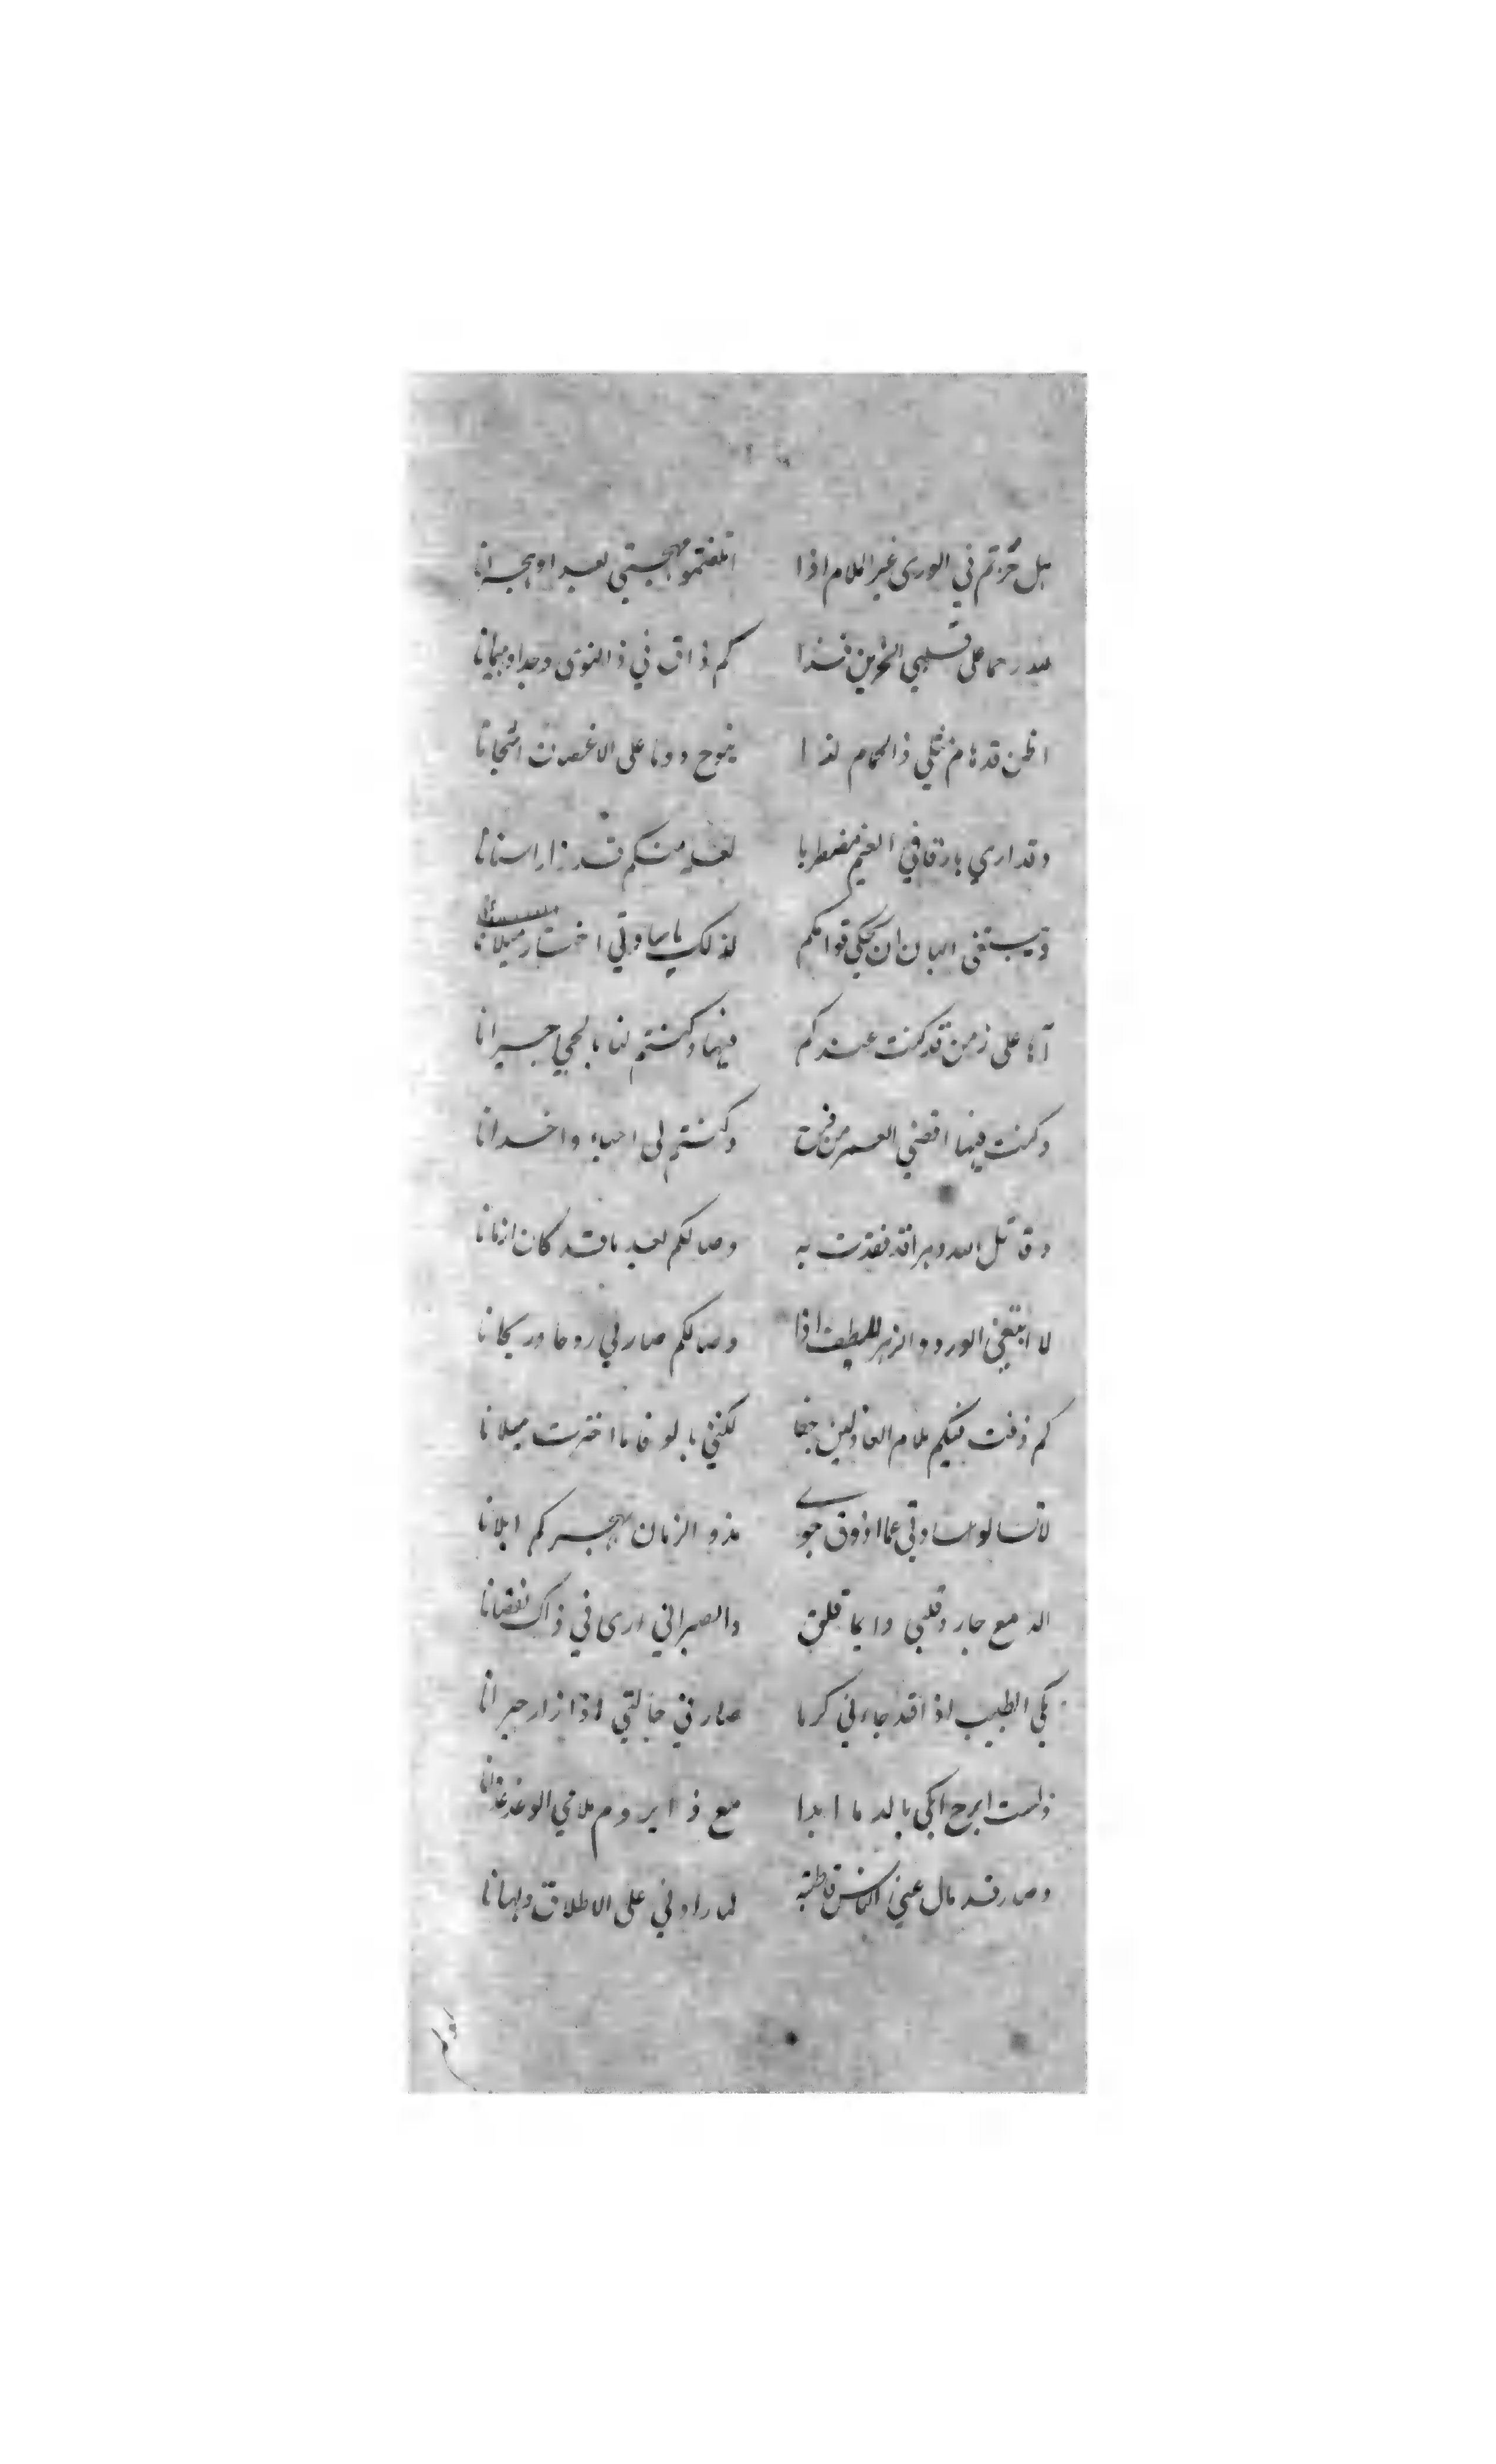 هل حزتم في الورى غير الملام اذا اتلفتمو مهجتي بعدا وهجرانا
لله رحما على قلبي الحزين فذا كم ذاق في ذا النوى وجدا وهيمانا
اظن قد هام مثلي ذا الحمام لذا ينوح دوما على الاغصان اشجانا
وقد ارى بارقا في الغيم مضطربا لعله منكم قد زار اسنانا
ويبتغي البان ان يحكي قوامكم لذلك يا سادتي اختار ميلانا
آها على زمن قد كنت عندكم فيها وكنتم لنا بالحي جيرانا
وكنت فيها اقضي العمر من فرح وكنتم لي احباء واخدانا
وقاتل الله دهرا قد نفذت به وصالكم بعد ما قد كان ازمانا
لا ابتغي الورد والزهر اللطيف اذا وصالكم صار لي روحا وريحانا
كم ذقت فيكم ملام العاذلين جفا لكنني بالوفا ما اخترت ميلانا
لا تسالوا سادتي عما اذوق جوى هذو الزمان بهجركم ابلانا
الدمع جار وقلبي دايما قلق والصبر اني ارى في ذاك نقصانا
يبكي الطبيب اذا قد جاءني كرما صار في حالتي اذا زار حيرانا
ولست ابرح ابكي بالدما ابدا مع ذا يروم ملامي الوغد
وصار قد مال عني الناس قاطبة لما راوني على الاطلاق ولهانا